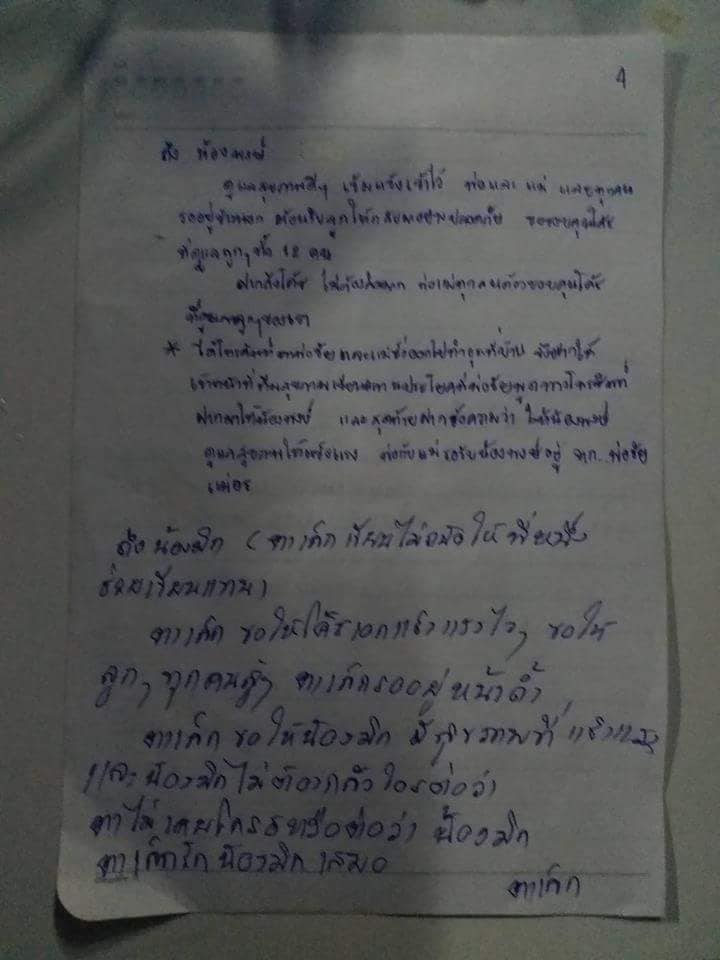 4
ถึง น้องพงษ์
ดูแลสุขภาพดีๆ เข้มแข็งเข้าไว้ พ่อและแม่ และทุกคน
รออยู่ข้างนอก ขอบคุณโค้ช
ที่ดูแลลูกๆ ทั้ง 12 คน
ฝากถึงโค้ช ไม่ต้อง พ่อแม่ทุกคนต้องขอบคุณโค้ช
ที่ดูแลลูกๆ ของเรา
* ได้โทรศัพท์ และแม่ ออกไปทำธุระที่บ้าน จึงฝากให้
เจ้าหน้าที่ เขียน ประโยคที่พ่อ พูดจากโทรศัพท์
ฝากมาให้น้องพงษ์ และสุดท้ายฝากข้อความว่า ให้น้องพงษ์
ดูแลสุขภาพให้แข็งแรง พ่อกับแม่รอรับน้องพงษ์อยู่ จาก พ่อ
แม่
ถึงน้องมิก (ตาเต็กเขียนไม่ถนัดให้พี่หนึ่ง
ช่วยเขียนแทน)
ตาเต็ก ขอให้โค้ชเอกแข็งแรงไวๆ ขอให้
ลูกๆ ทุกคนสู้ๆ ตาเต็กรออยู่หน้าถ้ำ
ตาเต็ก ขอให้น้องมิก มีสุขภาพที่แข็งแรง
และน้องมิกไม่ต้องกลัวใครต่อว่า
ตาไม่เคยโกรธหรือต่อว่า น้องมิก
ตาเต็กรักน้องมิกเสมอ
ตาเต็ก